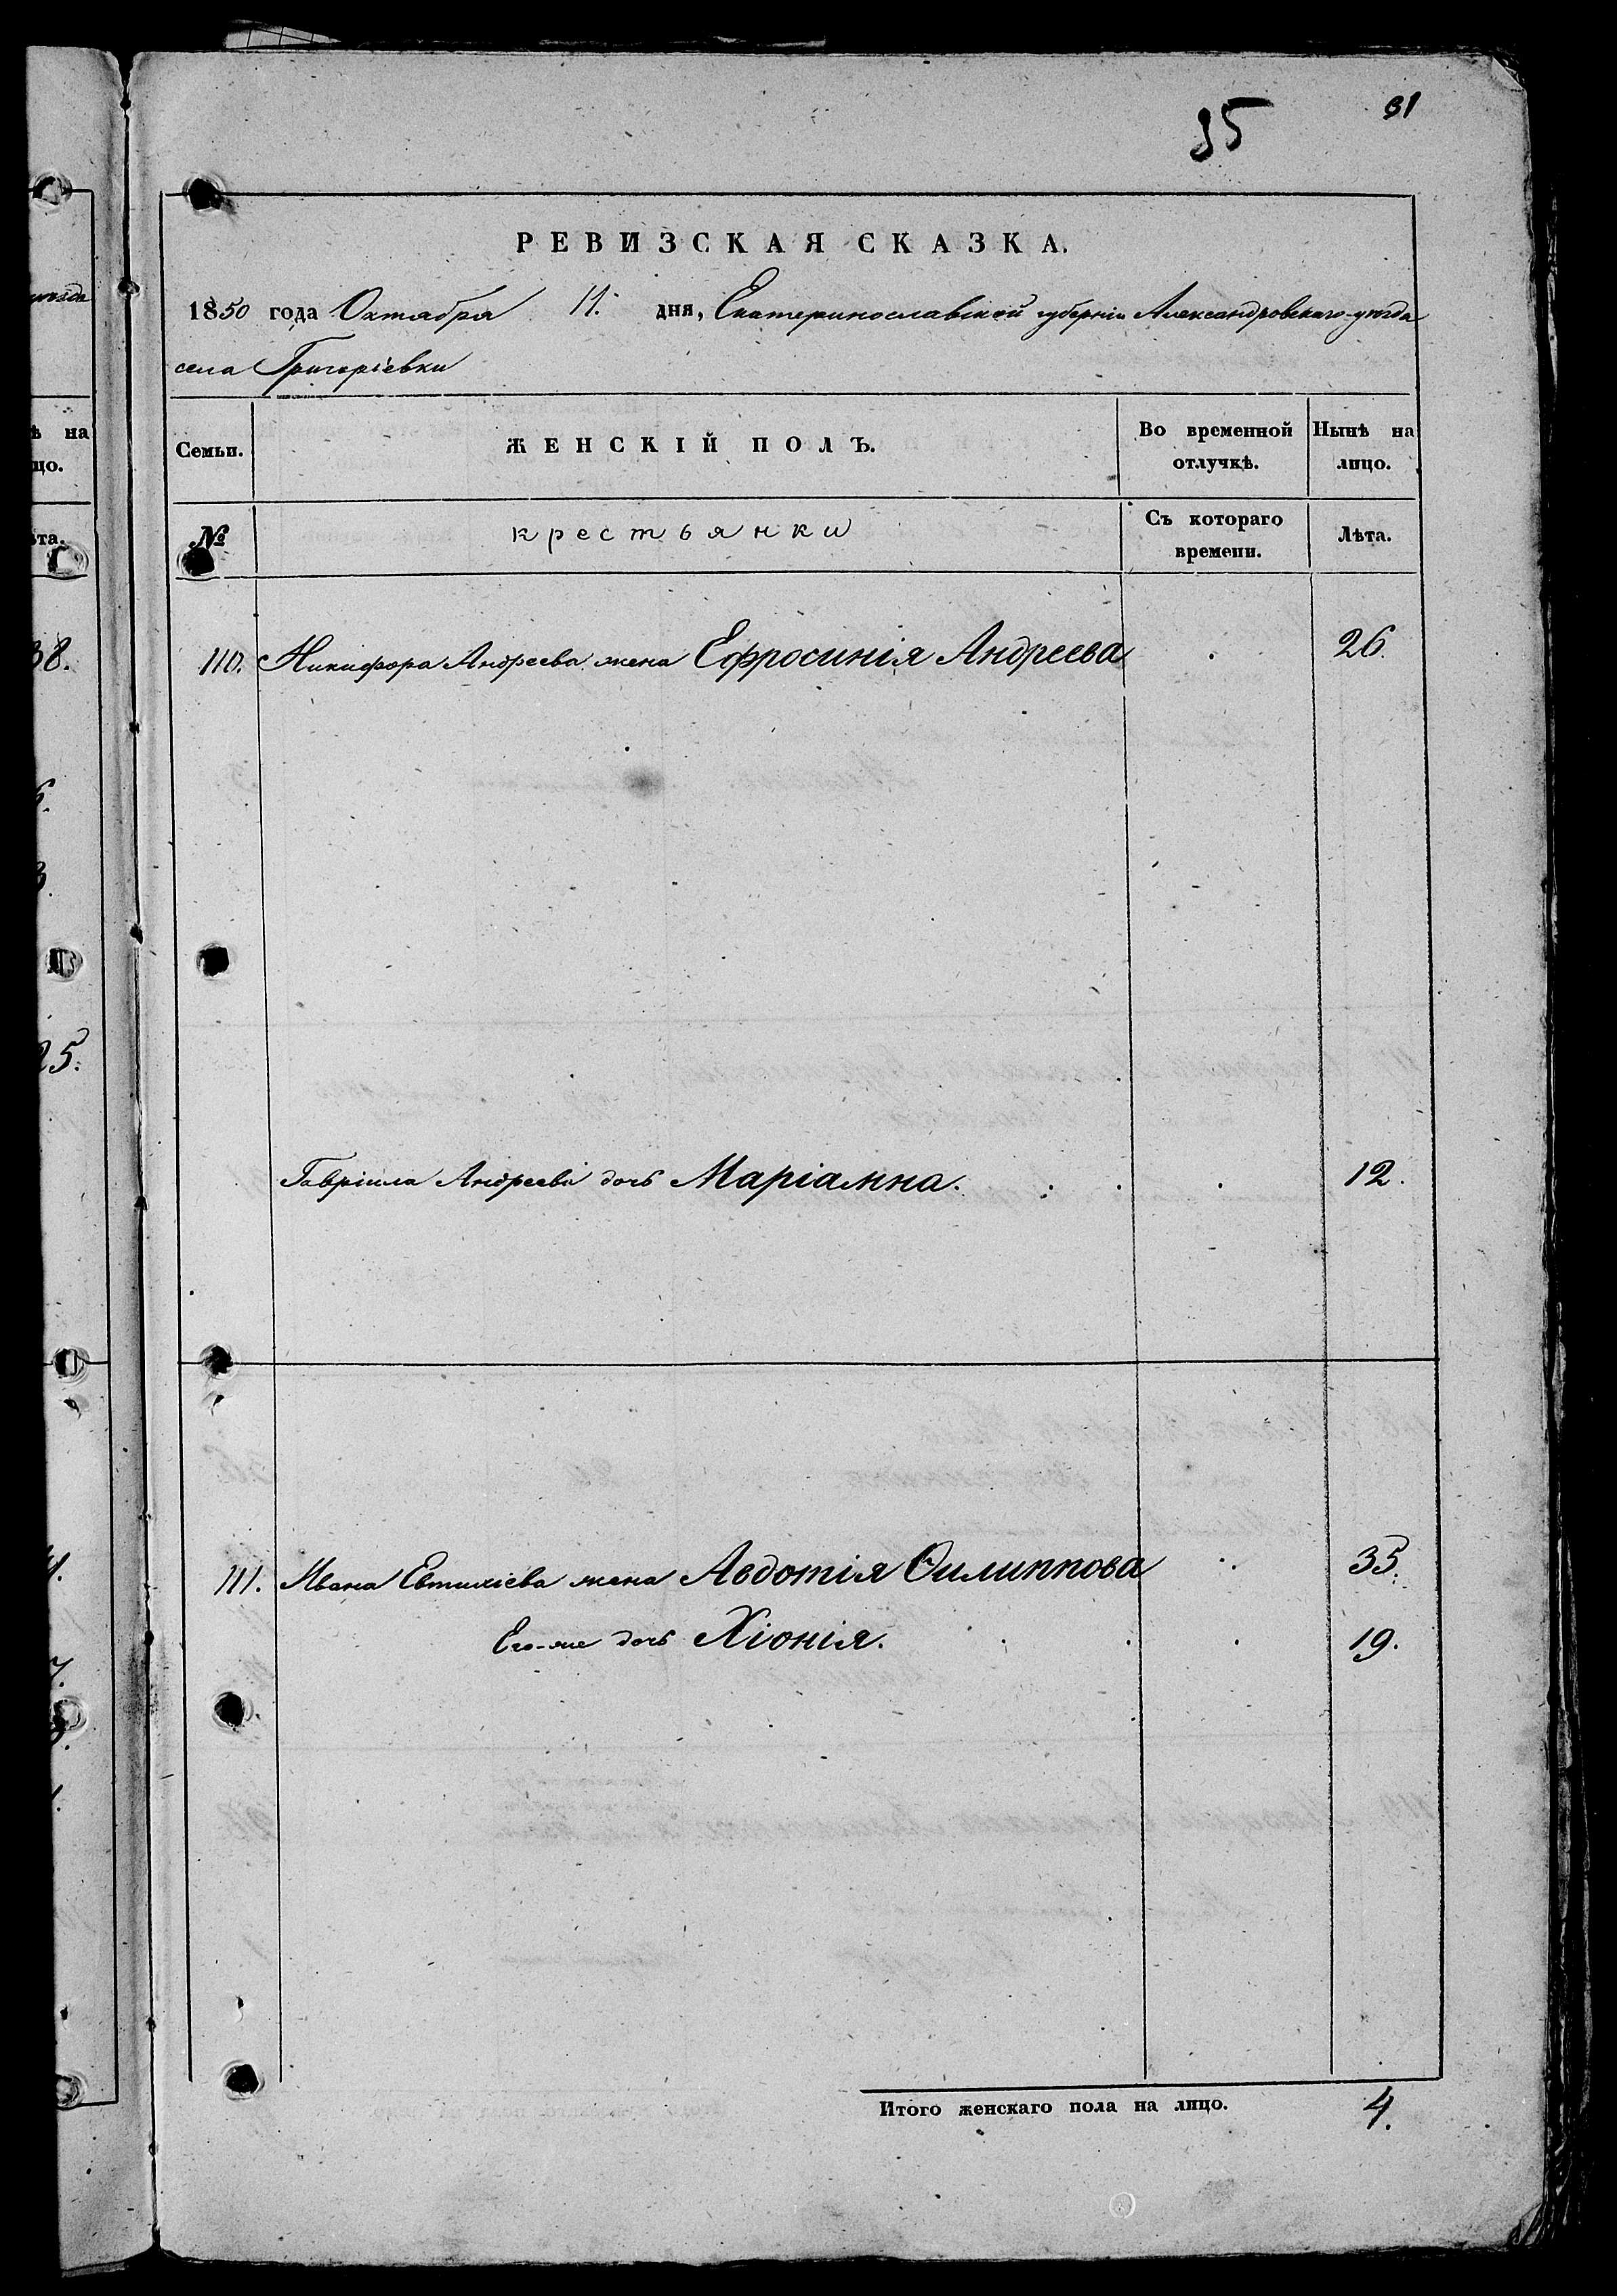 35
31
РЕВИЗСКАЯ СКАЗКА.
1850 года Октября 11. дня, Екатеринославской губерніи Александровскаго уѣзда
села Григоріевки
Семьи.
ЖЕНСКІЙ ПОЛЪ.
Во временной отлучкѣ.
Нынѣ на лицо.
№
крестьянки
Съ котораго времени.
Лѣта.
110. Никифора Андреева жена Ефросинія Андреева . 26.
Гавріила Андреева дочь Маріамна. . . . 12.
111. Ивана Евтихіева жена Авдотія Филиппова . 35.
Его-же дочь Хіонія. . . . 19.
Итого женскаго пола на лицо. 4.
38.
25.